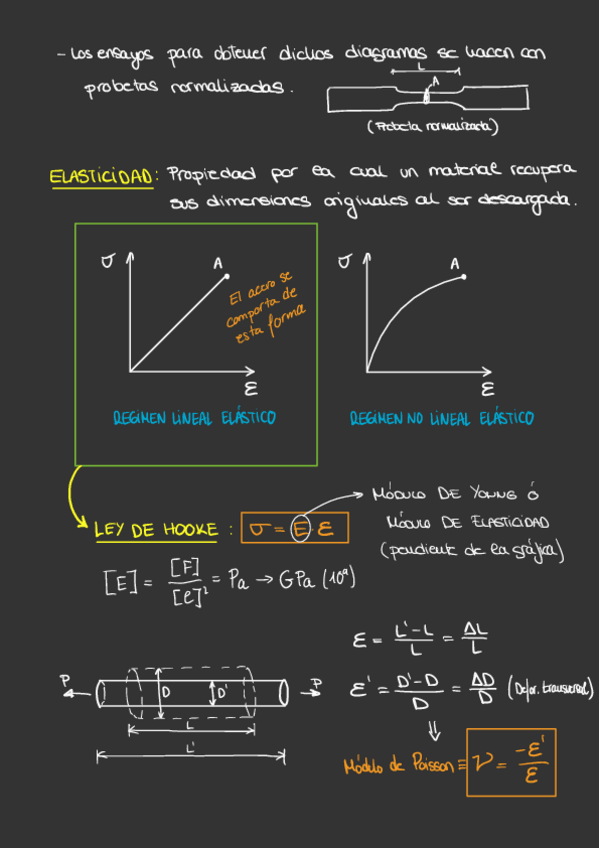 - Los ensayos para obtener dichos diagramas se hacen con
probetas normalizadas.
L
A
(Probeta normalizada)
ELASTICIDAD: Propiedad por la cual un material recupera
sus dimensiones originales al ser descargada.
σ
A
El acero se
comporta de
esta forma
ε
REGIMEN LINEAL ELÁSTICO
σ
A
ε
REGIMEN NO LINEAL ELÁSTICO
LEY DE HOOKE : σ = E · ε
MÓDULO DE YOUNG Ó
MÓDULO DE ELASTICIDAD
(pendiente de la gráfica)
[E] = [F] / [l]² = Pa → GPa (10⁹)
ε = L'-L / L = ΔL / L
P
D
D'
P
L
L'
ε' = D'-D / D = ΔD / D (Defor. transversal)
⇓
Módulo de Poisson ≡ ν = -ε' / ε